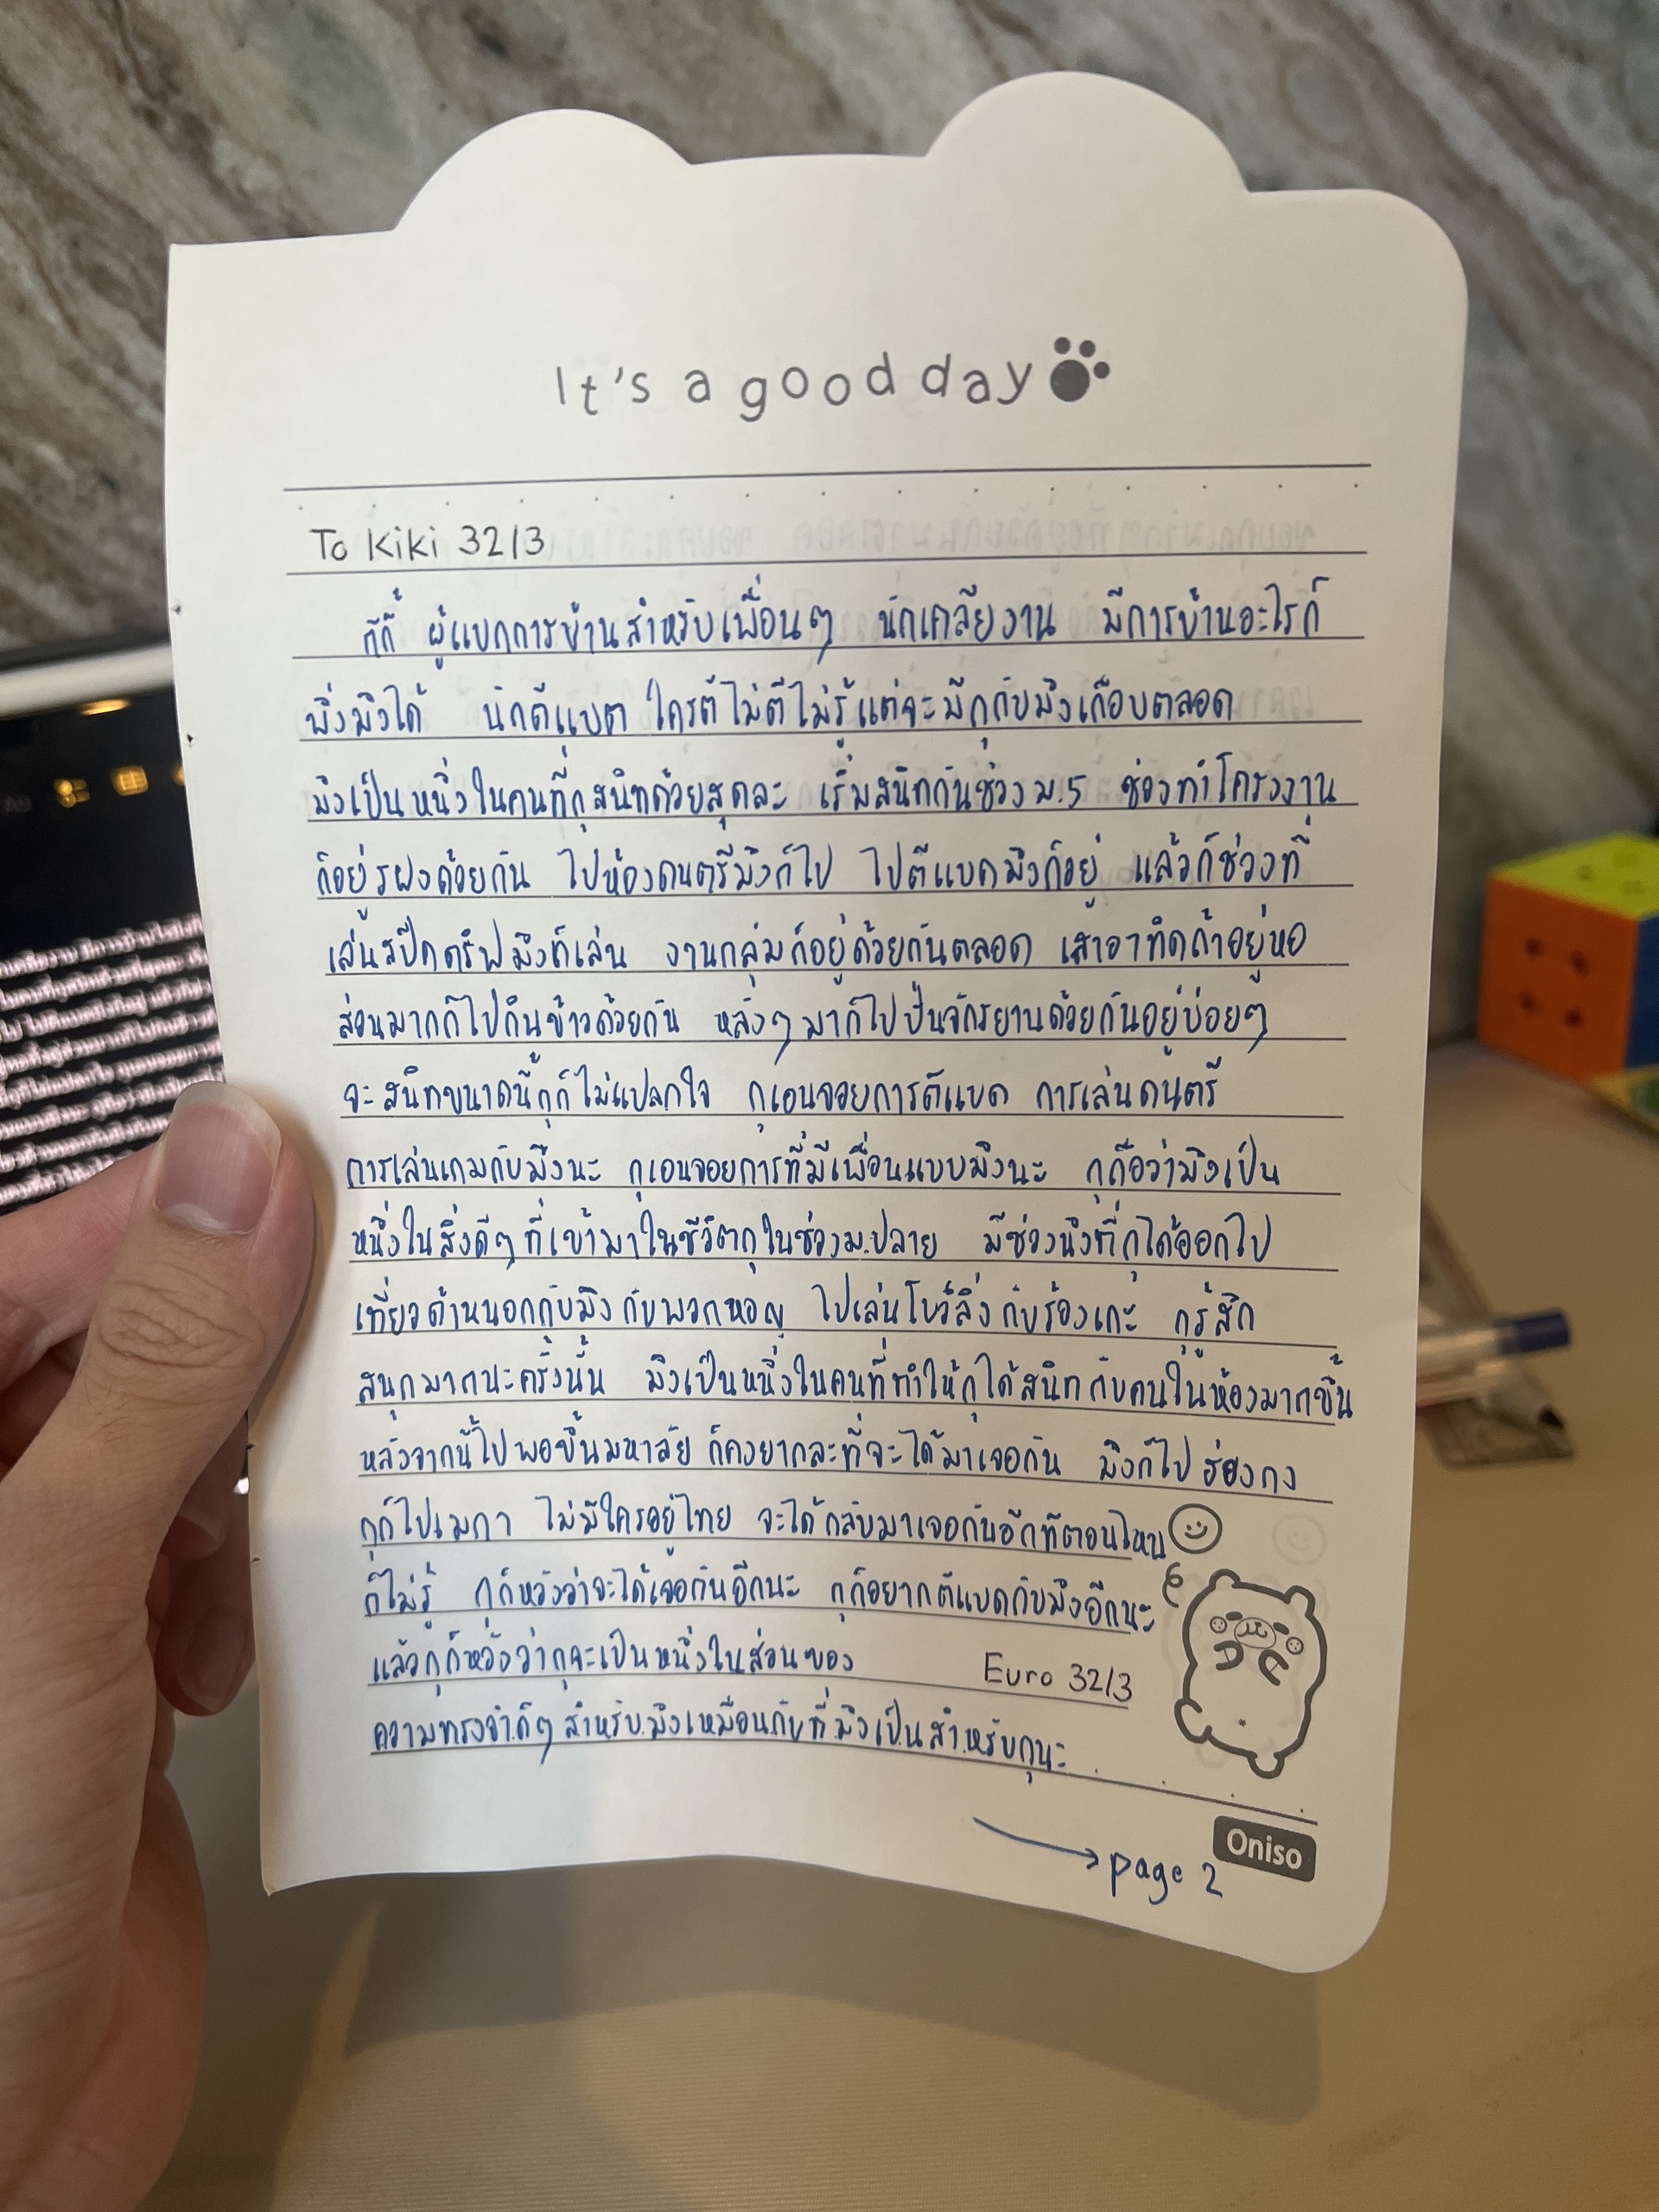 It's a good day
To Kiki 32/3
กีกี้ ผู้แบกการบ้านสำหรับเพื่อนๆ นักเคลียงาน มีการบ้านอะไรก็
พึ่งมึงได้ นักตีแบต ใครตีไม่ตีไม่รู้แต่จะมีกูกับมึงเกือบตลอด
มึงเป็นหนึ่งในคนที่กูสนิทด้วยสุดละ เริ่มสนิทกันช่วงม.5 ช่วงทำโครงงาน
ก็อยู่รฝงด้วยกัน ไปห้องดนตรีมึงก็ไป ไปตีแบดมึงก็อยู่ แล้วก็ช่วงที่
เล่นสปีดดริฟมึงก็เล่น งานกลุ่มก็อยู่ด้วยกันตลอด เสาอาทิดถ้าอยู่หอ
ส่วนมากก็ไปกินข้าวด้วยกัน หลังๆมาก็ไปปั่นจักรยานด้วยกันอยู่บ่อยๆ
จะสนิทขนาดนี้กูก็ไม่แปลกใจ กูเอนจอยการตีแบด การเล่นดนตรี
การเล่นเกมกับมึงนะ กูเอนจอยการที่มีเพื่อนแบบมึงนะ กูถือว่ามึงเป็น
หนึ่งในสิ่งดีๆที่เข้ามาในชีวิตกูในช่วงม.ปลาย มีช่วงนึงที่กูได้ออกไป
เที่ยวด้านนอกกับมึงกับพวกหอญ ไปเล่นโบว์ลิ่งกับร้องเกะ กูรู้สึก
สนุกมากนะครั้งนั้น มึงเป็นหนึ่งในคนที่ทำให้กูได้สนิทกับคนในห้องมากขึ้น
หลังจากนี้ไปพอขึ้นมหาลัย ก็คงยากละที่จะได้มาเจอกัน มึงก็ไปฮ่องกง
กูก็ไปเมกา ไม่มีใครอยู่ไทย จะได้กลับมาเจอกันอีกทีตอนไหน
ก็ไม่รู้ กูก็หวังว่าจะได้เจอกันอีกนะ กูก็อยากตีแบดกับมึงอีกนะ
แล้วกูก็หวังว่ากูจะเป็นหนึ่งในส่วนของ Euro 32/3
ความทรงจำดีๆสำหรับมึงเหมือนกับที่มึงเป็นสำหรับกูนะ
Oniso
page 2